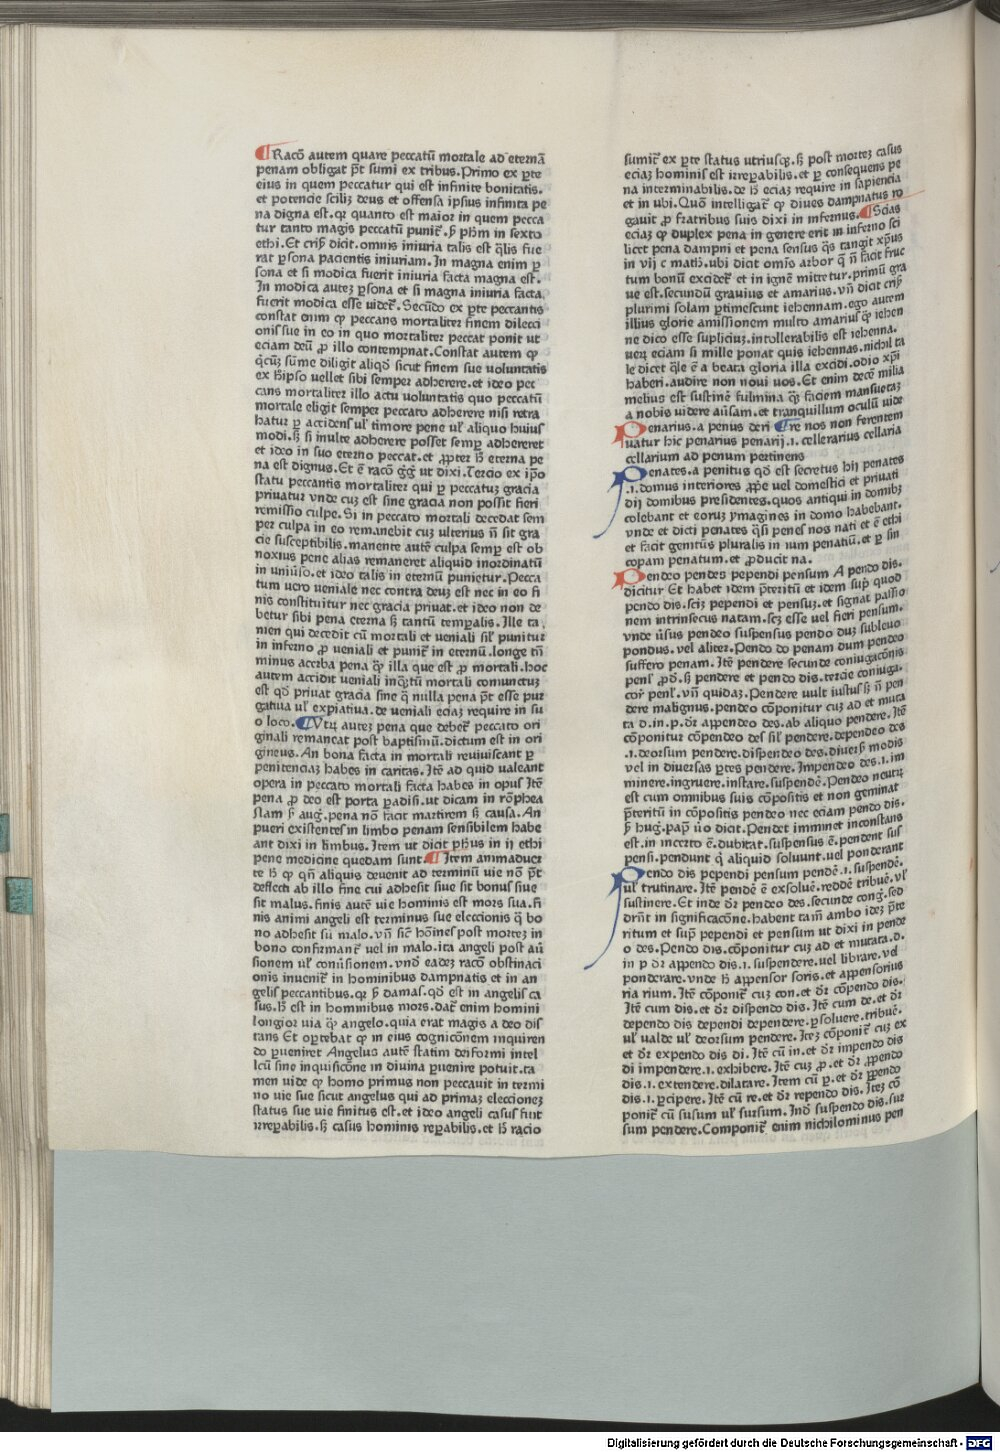 ¶ Racō autem quare peccatū mortale ad eternā
penam obligat pt̄ sumi ex tribus. Primo ex ꝑte
eius in quem peccatur qui est infinite bonitatis.
et potencie scilꝫ deus et offensa ipsius infinita pe
na digna est. qꝛ quanto est maior in quem pecca
tur tanto magis peccatū punit᷑. ꝭm ph̄m in sexto
ethi. Et crisꝰ dicit. omnis iniuria talis est qͣlis fue
rat ꝑsona pacientis iniuriam. In magna enim ꝑ
sona et si modica fuerit iniuria facta magna est.
In modica auteꝫ ꝑsona et si magna iniuria facta.
fuerit modica esse uidet᷑. Secūdo ex ꝑte peccantis
constat enim ꝙ peccans mortaliter finem dilecci
onis sue in eo in quo mortaliter peccat ponit ut
eciam deū ꝓ illo contempnat. Constat autem ꝙ
qͥcūꝫ sūme diligit aliqd̓ sicut finem sue uoluntatis
ex h̄ ipso uellet sibi semper adherere. et ideo pec
cans mortaliter illo actu uoluntatis quo peccatū
mortale eligit semper peccato adherere nisi retra
hatur ꝑ accidens ul̓ timore pene ul̓ aliquo huius
modi. sꝫ si inulte adherere posset semꝑ adhereret
et ideo in suo eterno peccat. et ꝓpter h̄ eterna pe
na est dignus. Et ē racō gͦgͦ ut dixi. Tercio ex ip̄o
statu peccantis mortaliter qui ꝑ peccatuꝫ gracia
priuatur vnde cuꝫ est sine gracia non possit fieri
remissio culpe. Si in peccato mortali decedat sem
per culpa in eo remanebit cuꝫ ulterius n̄ sit gra
cie susceptibilis. manente autē culpa semꝑ est ob
noxius pene alias remaneret aliquid inordinatū
in uniūso. et ideo talis in eternū punietur. Pecca
tum uero ueniale nec contra deuꝫ est nec in eo fi
nis constituitur nec gracia priuat. et ideo non de
betur sibi pena eterna sꝫ tantū tempꝛalis. Ille ta
men qui decedit cū mortali et ueniali sil̓ punitur
in inferno ꝓ ueniali et punit᷑ in eternū. longe tn̄
minus acerba pena qͣꝫ illa que est ꝓ mortali. hoc
autem accidit ueniali inqͣtū mortali comunctuꝫ
est qd̓ priuat gracia sine qͣ nulla pena pt̄ esse pur
gatiua ul̓ expiatiua. de ueniali eciaꝫ require in su
o loco. ¶ Vtꝝ auteꝫ pena que debet᷑ peccato ori
ginali remaneat post baptismū. dictum est in ori
gineus. An bona facta in mortali reuiuiscant ꝑ
penitenciaꝫ habes in caritas. Itē ad quid ualeant
opera in peccato mortali facta habes in opus Itē
pena ꝓ deo est porta ꝑadisi. ut dicam in rōphea
slam ꝭm augꝭ. pena nō facit martirem sꝫ causa. An
pueri existentes in limbo penam sensibilem habe
ant dixi in limbus. Item ut dicit ph̄us in ij ethi
pene medicine quedam sunt. ¶ Item animaduer
te h̄ ꝙ qn̄ aliquis deuenit ad terminū uie nō pt̄
deflecti ab illo fine cui adhesit siue sit bonus siue
sit malus. finis autē uie hominis est mors sua. fi
nis animi angeli est terminus sue eleccionis qͥ bo
no adhesit siu malo. vn̄ sic̄ hōines post morteꝫ in
bono confirmant᷑ uel in malo. ita angeli post aū
sionem ul̓ conūsionem. vnd̓ eadeꝫ racō obstinaci
onis inuenit᷑ in hominibus dampnatis et in an
gelis peccantibus. qꝛ ꝭm damasꝭ. qd̓ est in angelis ca
sus. h̄ est in hominibus mors. dat᷑ enim homini
longior uia qͣꝫ angelo. quia erat magis a deo dis
tans Et oꝑtebat ꝙ in eius cognicōnem inquiren
do ꝑueniret Angelus autē statim deiformi intel
lcū sine inquisicōne in diuina ꝑuenire potuit. ta
men uide ꝙ homo primus non peccauit in termi
no uie sue sicut angelus qui ad primaꝫ eleccioneꝫ
status sue uie finitus est. et ideo angeli casus fuit
irreꝑabilis. sꝫ casus hominis reꝑabilis. et h̄ racio
sumit᷑ ex ꝑte status utriusqꝫ. sꝫ post morteꝫ casus
eciaꝫ hominis est irreꝑabilis. et ꝑ consequens pe
na interminabilis. de h̄ eciaꝫ require in sapiencia
et in ubi. Quō intelligat᷑ ꝙ diues dampnatus ro
gauit ꝓ fratribus suis dixi in infernus. ¶ Scias
eciaꝫ ꝙ duplex pena in genere erit in inferno sci
licet pena dampni et pena sensus qͣs tangit xp̄us
in vij c math̄. ubi dicit om̄is arbor q̄ n̄ facit fruc
tum bonū excidet᷑ et in ignē mittetur. primū gra
ue est. secundū grauius et amarius. vn̄ dicit crisꝰ
plurimi solam ꝑtimescunt iehennam. ego autem
illius glorie amissionem multo amariusqͣꝫ iehen
ne dico esse supliciuꝫ. intollerabilis est iehenna.
ueꝝ eciam si mille ponat quis iehennas. nichil ta
le dicet qͣle ē a beata gloria illa excidi. odio xp̄i
haberi. audire non noui uos. Et enim decē milia
melius est sustinē fulmina qͣꝫ faciem mansuetaꝫ
a nobis uidere aūsam. et tranquillum oculū uide
Penarius. a penus deri ¶re nos non ferentem
uatur hic penarius penarij. i. cellerarius cellaria
cellarium ad penum pertinens
Penates. a penitus qd̓ est secretus hij penates
. i. domus interiores ꝓpe uel domestici et priuati
dij domibus presidentes. quos antiqui in domibꝫ
colebant et eoruꝫ ymagines in domo habebant.
vnde et dicti penates qͣsi penes nos nati et ē ethi
et facit genitiūs pluralis in ium penatiū. et ꝑ sin
copam penatum. et ꝓducit na.
Pendeo pendes pependi pensum A pendo dis.
dicitur Et habet idem pꝛeteritū et idem supꝭ quod
pendo dis. sciꝫ pependi et pensuꝫ. et signat passio
nem intrinsecus natam. scꝫ esse uel fieri pensum.
vnde ūsus pendeo suspensus pendo duꝫ subleuo
pondus. vel aliter. Pendo do penam dum pendeo
suffero penam. Itē pendere secunde coniugacōnis
penl̓ ꝓd̓. sꝫ pendere et pendo dis. tercie coniuga.
corꝭ penl̓. vn̄ quidaꝫ. Pendere uult iustus sꝫ n̄ pen
dere malignus. pendeo cōponitur cuꝫ ad et muta
ta .d. in .p. dꝛ appendeo des. ab aliquo pendere. Itē
cōponitur cōpendeo des sil̓ pendere. dependeo des
. i. deorsum pendere. dispendeo des. diuersꝭ modis
vel in diuersas ꝑtes pendere. Impendeo des. i. im
minere. ingruere. instare. suspendē. Pendeo neutꝝ
est cum omnibus suis cōpositis et non geminat
pꝛeteritū in cōpositis pendeo nec eciam pendo dis.
ꝭm hugꝭ. papꝭ ūo dicit. Pendet imminet inconstans
est. in incerto ē. dubitat. suspensus ē. pendent sus
pensi. pendunt qͥ aliquid soluunt. uel ponderant
Pendo dis pependi pensum pendē. i. suspendē.
ul̓ trutinare. Itē pendē ē exsoluē. reddē tribuē. ul̓
sustinere. Et inde dꝛ pendeo des. secunde congꝭ. sed
drn̄t in significacōne. habent tam̄ ambo ideꝫ pꝛete
ritum et supꝭ pependi et pensum ut dixi in pende
o des. Pendo dis. cōponitur cuꝫ ad et mutata .d.
in p dꝛ appendo dis. i. suspendere. uel librare. vel
ponderare. vnde h̄ appensor soris. et appensorius
ria rium. Itē cōponit᷑ cuꝫ con. et dꝛ cōpendo dis.
Itē cum dis. et dꝛ dispendo dis. Itē cum de. et dꝛ
dependo dis dependi dependere. ꝑsoluere. tribuē.
ul̓ ualde ul̓ deorsum pendere. Iteꝫ cōponit᷑ cuꝫ ex
et dꝛ expendo dis di. Itē cū in. et dꝛ impendo dis
di impendere. i. exhibere. Itē cuꝫ ꝓ. et dꝛ ꝓpendo
dis. i. extendere. dilatare. Item cū ꝑ. et dꝛ ꝑpendo
dis. i. ꝑcipere. Itē cū re. et dꝛ rependo dis. Iteꝫ cō
ponit᷑ cū susum ul̓ sursum. Ind̓ suspendo dis. sur
sum pendere. Componit᷑ enim nichilominus pen
Digitalisierung gefördert durch die Deutsche Forschungsgemeinschaft - DFG